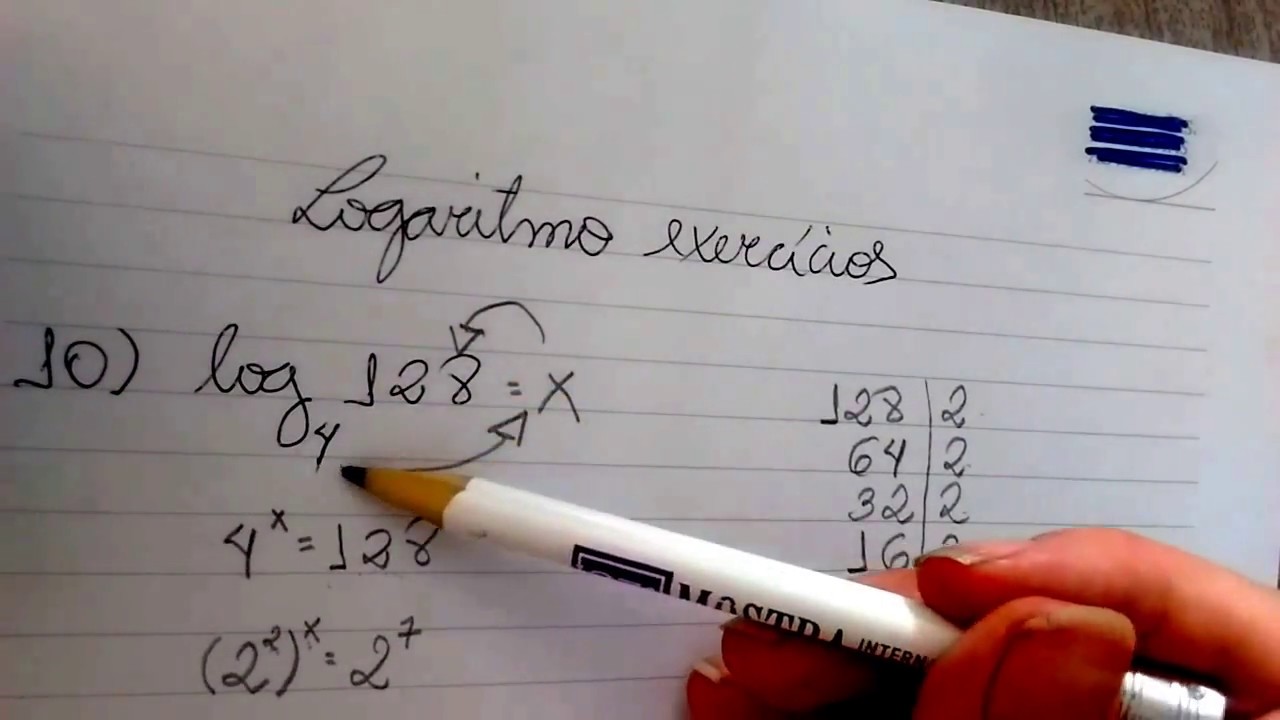 Logaritmo exercícios
10) log₄ 128 = x
4ˣ = 128
(2²)ˣ = 2⁷
128 | 2
64 | 2
32 | 2
16 |
MOSTRA INTERN